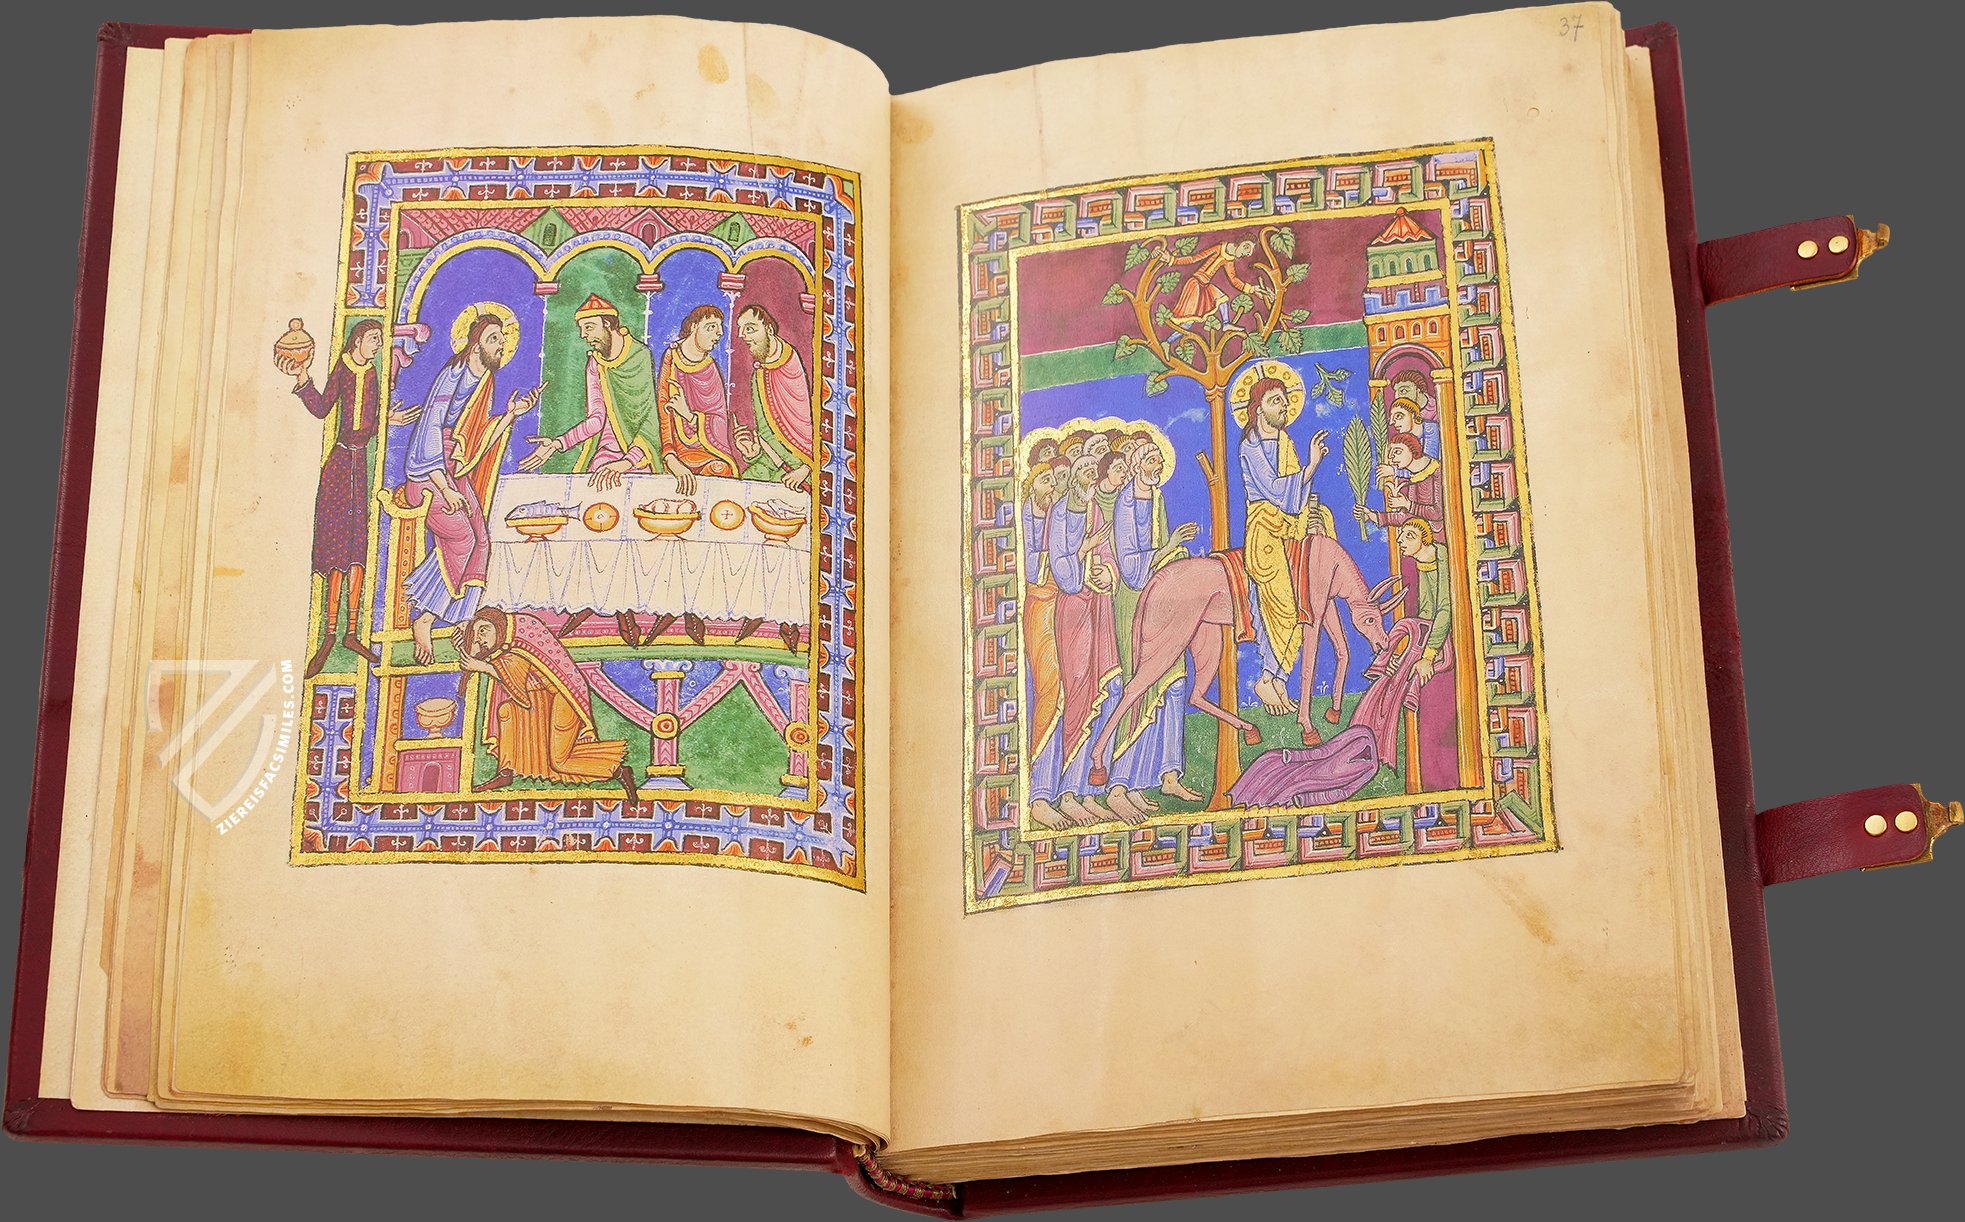 37
ZIEREISFACSIMILES.COM